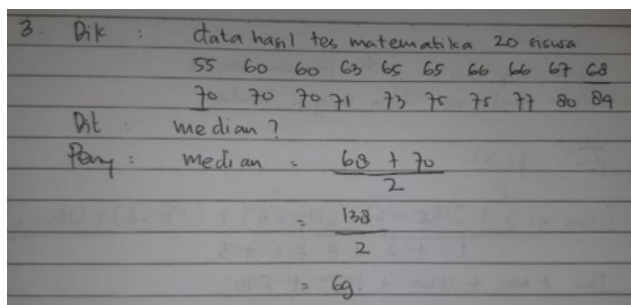 3. Dik : data hasil tes matematika 20 siswa
55 60 60 63 65 65 66 66 67 68
70 70 70 71 73 75 75 77 80 89
Dit : median ?
Peny : median = 68 + 70
2
= 138
2
= 69